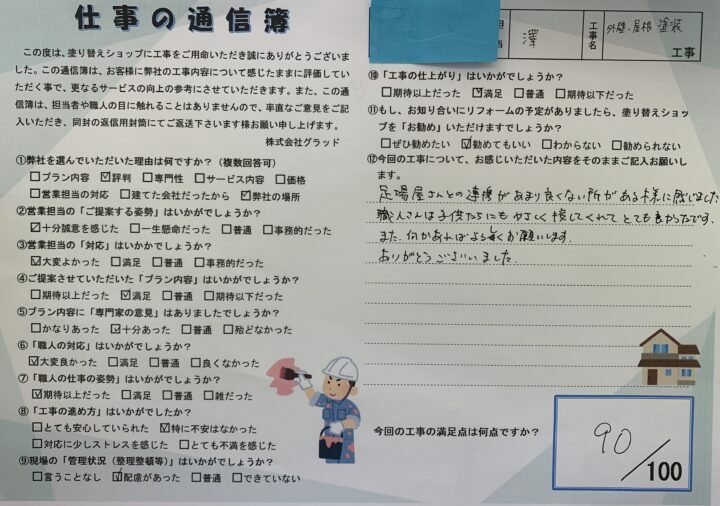 仕事の通信簿
この度は、塗り替えショップに工事をご用命いただき誠にありがとうございま
した。この通信簿は、お客様に弊社の工事内容について感じたままに評価してい
ただく事で、更なるサービスの向上の参考にさせていただきます。また、この通
信簿は、担当者や職人の目に触れることはありませんので、率直なご意見をご記
入いただき、同封の返信用封筒にてご返送下さいます様お願い申し上げます。
株式会社グラッド
①弊社を選んでいただいた理由は何ですか？（複数回答可）
□プラン内容 ☑評判 □専門性 □サービス内容 □価格
□営業担当の対応 □建てた会社だったから ☑弊社の場所
②営業担当の「ご提案する姿勢」はいかがでしょうか？
☑十分誠意を感じた □一生懸命だった □普通 □事務的だった
③営業担当の「対応」はいかかでしょうか？
☑大変よかった □満足 □普通 □事務的だった
④ご提案させていただいた「プラン内容」はいかがでしょうか？
□期待以上だった ☑満足 □普通 □期待以下だった
⑤プラン内容に「専門家の意見」はありましたでしょうか？
□かなりあった ☑十分あった □普通 □殆どなかった
⑥「職人の対応」はいかがでしょうか？
☑大変良かった □満足 □普通 □良くなかった
⑦「職人の仕事の姿勢」はいかがでしょうか？
☑期待以上だった □満足 □普通 □雑だった
⑧「工事の進め方」はいかがでしたか？
□とても安心していられた ☑特に不安はなかった
□対応に少しストレスを感じた □とても不満を感じた
⑨現場の「管理状況（整理整頓等）」はいかがでしょうか？
□言うことなし ☑配慮があった □普通 □できていない
担当 澤 工事名 外壁、屋根塗装 工事
⑩「工事の仕上がり」はいかがでしょうか？
□期待以上だった ☑満足 □普通 □期待以下だった
⑪もし、お知り合いにリフォームの予定がありましたら、塗り替えショッ
プを「お勧め」いただけますでしょうか？
□ぜひ勧めたい ☑勧めてもいい □わからない □勧められない
⑫今回の工事について、お感じいただいた内容をそのままご記入お願いし
ます。
足場屋さんとの連携があまり良くない所がある様に感じました
職人さんは子供たちにもやさしく接してくれてとても良かったです。
また、何かあればよろしくお願いします。
ありがとうございました。
今回の工事の満足点は何点ですか？
90/100